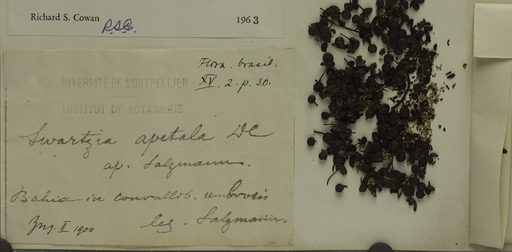 Richard S. Cowan 1963
R.S.C.
Flora brasil.
XV. 2. p. 30.
UNIVERSITÉ DE MONTPELLIER
INSTITUT DE BOTANIQUE
Swartzia apetala DC
ap. Salzmann.
Bahia in convallib. umbrosis
leg. Salzmann.
X 1900